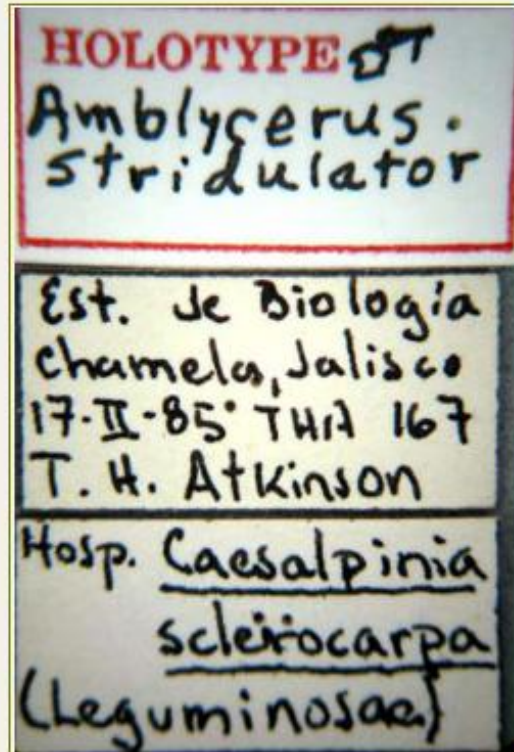 HOLOTYPE ♂
Amblycerus.
stridulator
Est. de Biología
Chamela, Jalisco
17-II-85 THA 167
T. H. Atkinson
Hosp. Caesalpinia
sclerocarpa
(Leguminosae)